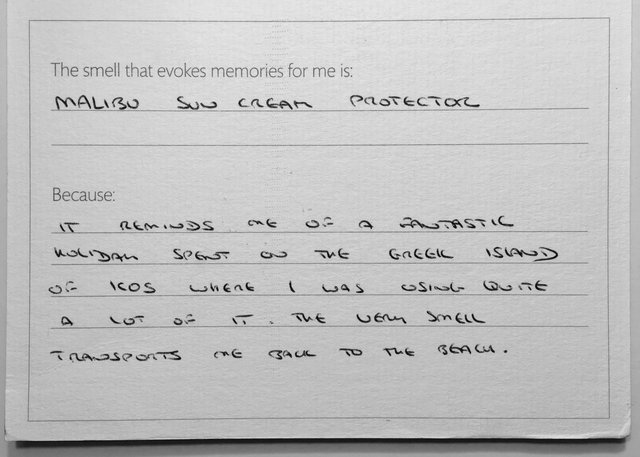 The smell that evokes memories for me is:
MALIBU SUN CREAM PROTECTOR
Because:
IT REMINDS ME OF A FANTASTIC
HOLIDAY SPENT ON THE GREEK ISLAND
OF KOS WHERE I WAS USING QUITE
A LOT OF IT. THE VERY SMELL
TRANSPORTS ME BACK TO THE BEACH.